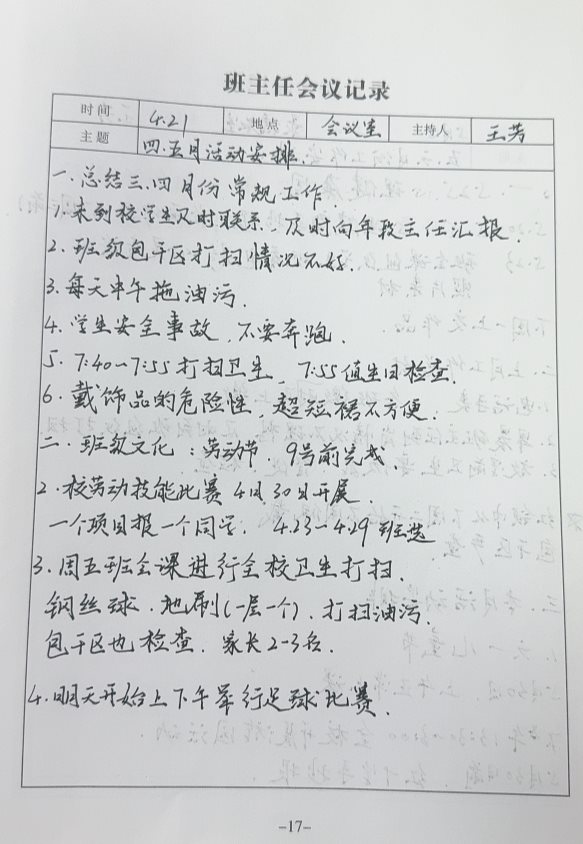 班主任会议记录
时间 4.21 地点 会议室 主持人 王芳
主题 四.五月活动安排.
一.总结三.四月份常规工作
1.未到校学生及时联系，及时向年段主任汇报.
2.班级包干区打扫情况不好.
3.每天中午拖油污.
4.学生安全事故，不要奔跑.
5.7:40~7:55打扫卫生，7:55值生日检查.
6.戴饰品的危险性，超短裙不方便.
二.班级文化：劳动节.9号前完成.
2.校劳动技能比赛 4月30日开展.
一个项目报一个同学. 4.23-4.29 班选
3.周五班会课进行全校卫生打扫.
钢丝球.地刷(一层一个).打扫油污.
包干区也检查.家长2-3名.
4.明天开始上下午举行足球比赛.
-17-